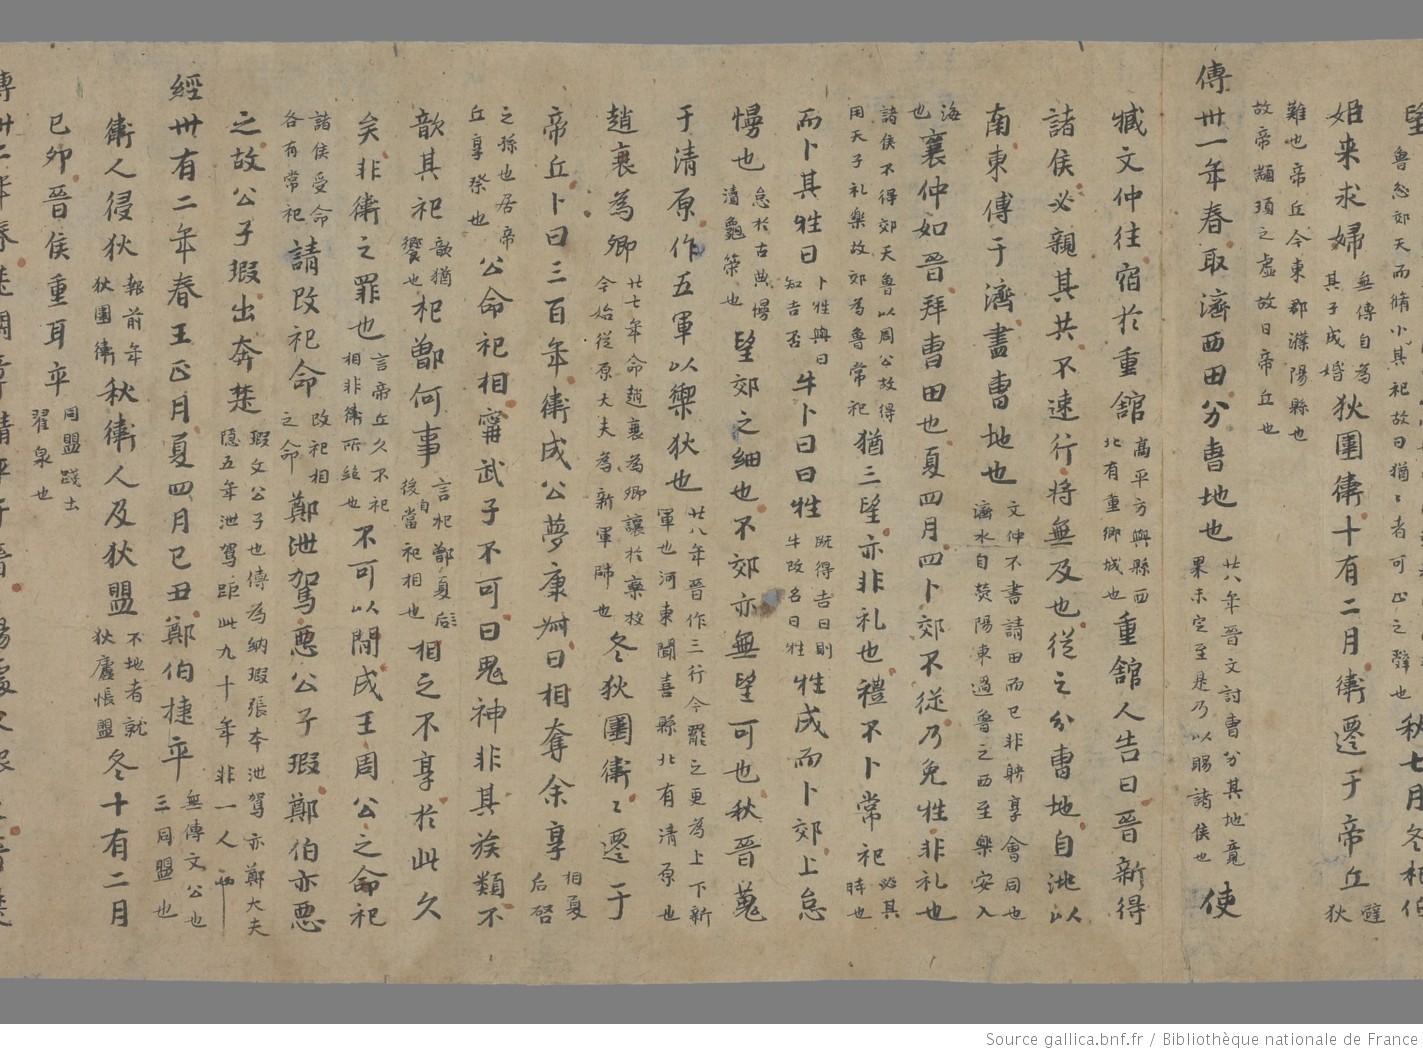 望魯忩郊天而脩小其祀故曰猶〻者可止之辝也秋七月冬杞伯
姬来求婦無傳自為其子成婚狄圍衛十有二月衛遷于帝丘狄辟
難也帝丘今東郡濮陽縣也故帝顓頊之虛故曰帝丘也
傳卅一年春取濟西田分曺地也廿八年晉文討曺分其地竟果未定至是乃以賜諸侯也使
臧文仲往宿於重舘高平方與縣西北有重鄉城也重舘人告曰晉新得
諸侯必親其共不速行將無及也從之分曺地自洮以
南東傅于濟盡曺地也文仲不書請田而已非聘享會同也濟水自熒陽東過魯之西至樂安入
海也襄仲如晉拜曺田也夏四月四卜郊不從乃免牲非礼也
諸侯不得郊天魯以周公故得用天子礼樂故郊為魯常祀猶三望亦非礼也禮不卜常祀必其時也
而卜其牲日卜牲與日知吉否牛卜日曰牲既得吉日則牛改名曰牲牲成而卜郊上怠
慢也怠於古典慢瀆龜筞也望郊之細也不郊亦無望可也秋晉蒐
于清原作五軍以禦狄也廿八年晉作三行今罷之更為上下新軍也河東聞喜縣北有清原也
趙襄為卿廿七年命趙襄為卿讓於欒枝今始從原大夫為新軍帥也冬狄圍衛〻遷于
帝丘卜曰三百年衛成公夢康叔曰相奪余享相夏后啓
之孫也居帝丘享祭也公命祀相甯武子不可曰鬼神非其族類不
歆其祀歆猶饗也杞鄫何事言杞鄫夏后後自當祀相也相之不享於此久
矣非衛之罪也言帝丘久不祀相非衛所絕也不可以間成王周公之命祀
諸侯受命各有常祀請改祀命改祀相之命鄭洩駕惡公子瑕鄭伯亦惡
之故公子瑕出奔楚瑕文公子也傳為納瑕張本洩駕亦鄭大夫隐五年洩駕距此九十年非一人
經卅有二年春王正月夏四月己丑鄭伯捷卒無傳文公也三同盟也
衛人侵狄報前年狄圍衛秋衛人及狄盟不地者就狄廬悵盟冬十有二月
已夘晉侯重耳卒同盟踐土翟泉也